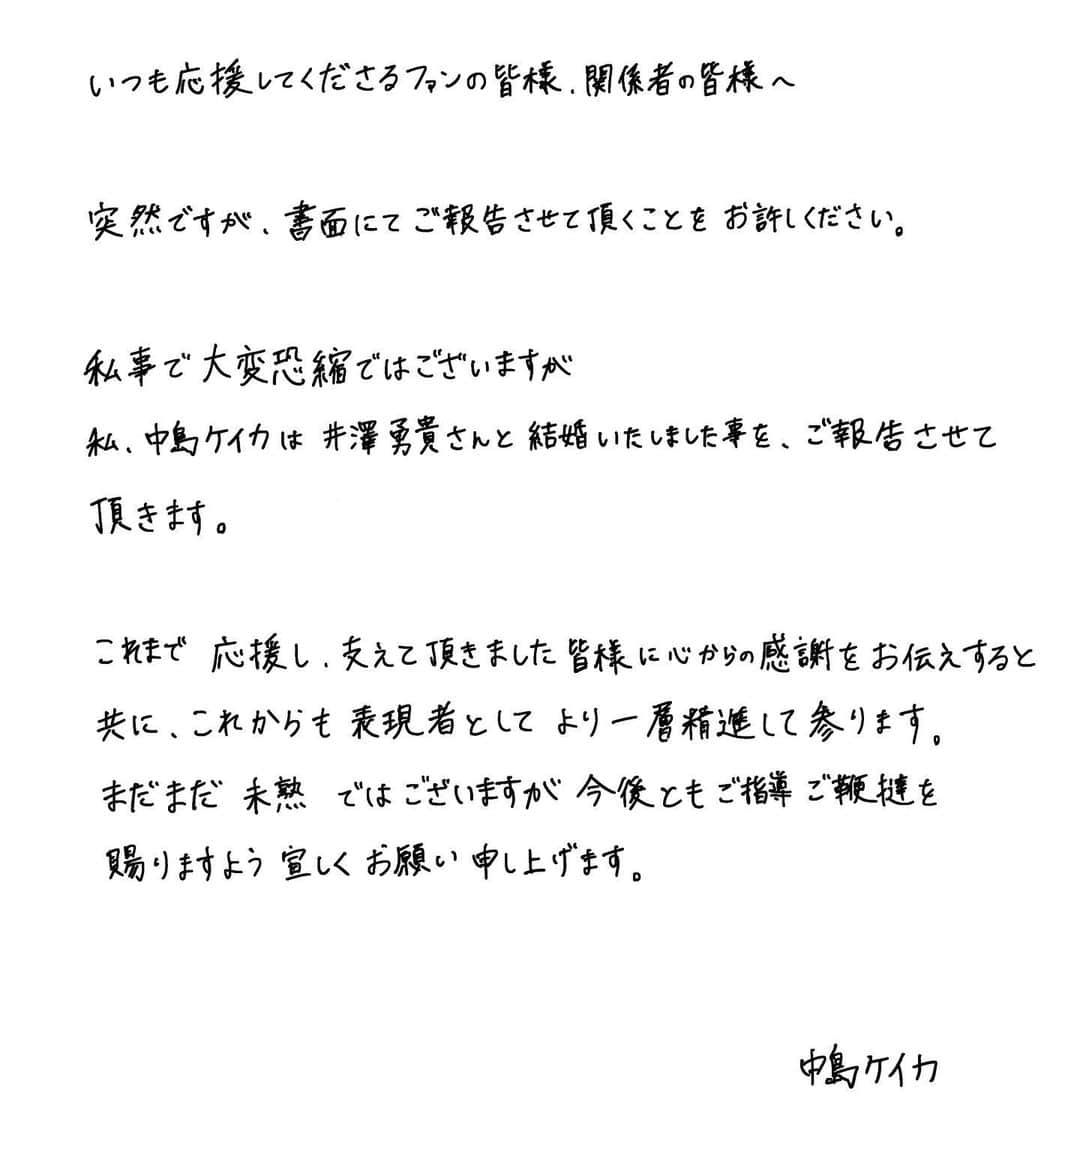 いつも応援してくださるファンの皆様、関係者の皆様へ
突然ですが、書面にてご報告させて頂くことをお許しください。
私事で大変恐縮ではございますが
私、中島ケイカは井澤勇貴さんと結婚いたしました事を、ご報告させて
頂きます。
これまで応援し、支えて頂きました皆様に心からの感謝をお伝えすると
共に、これからも表現者としてより一層精進して参ります。
まだまだ未熟ではございますが今後ともご指導ご鞭撻を
賜りますよう宜しくお願い申し上げます。
中島ケイカ